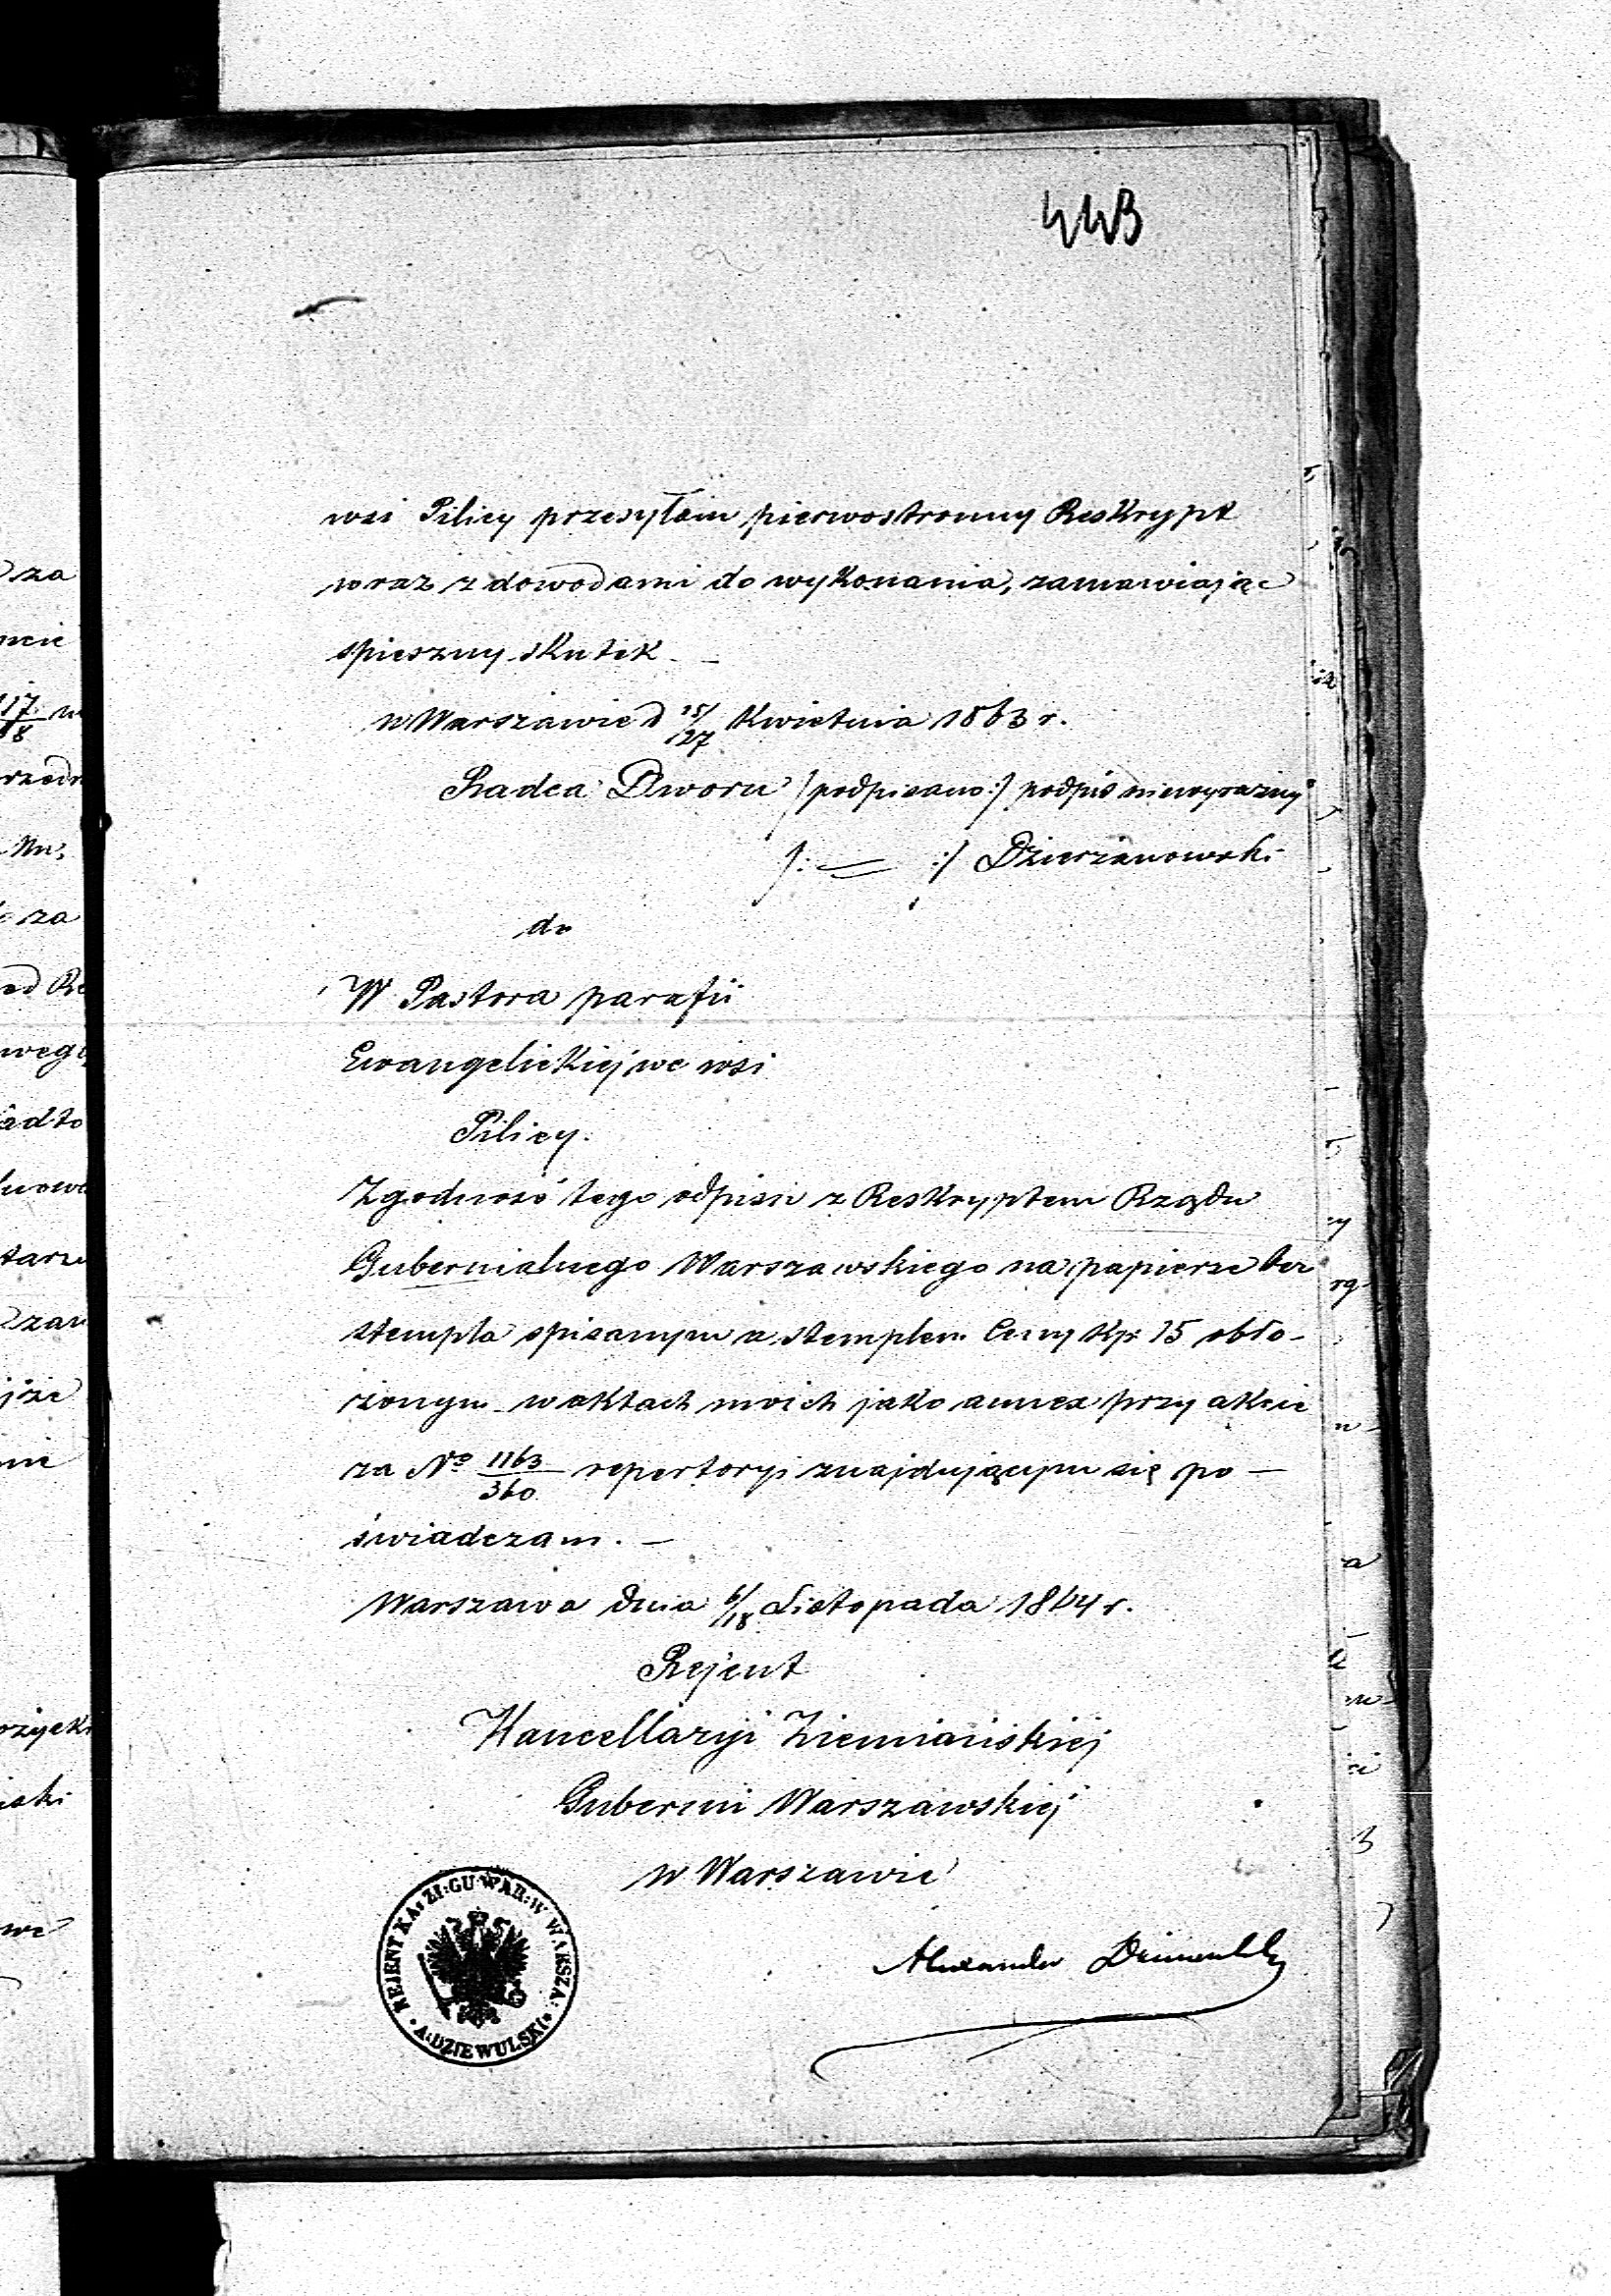 443
wsi Pilicy przesyłam pierwostronny Reskrypt
wraz z dowodami do wykonania, zamawiając
spieszny skutek —
w Warszawie d 15/27 Kwietnia 1863 r.
Radca Dworu /podpisano:/ podpis niewyraźny
/: = :/ Dzierzanowski
do
W Pastora parafii
Ewangelickiej we wsi
Pilicy.
Zgodność tego odpisu z Reskryptem Rządu
Gubernialnego Warszawskiego na papierze bez
stempla spisanym a stemplem Ceny Kp: 15 obło-
żonym w aktach moich jako annex przy akcie
za No 1163/360 repertoryi znajdującym się po —
świadczam. —
Warszawa dnia 6/18 Listopada 1864 r.
Rejent
Kancellaryi Ziemiańskiej
Gubernii Warszawskiej
w Warszawie
REJENT KA: ZI: GU WAR: W WARSZA:
A: DZIEWULSKI
Alexander Dziewulski